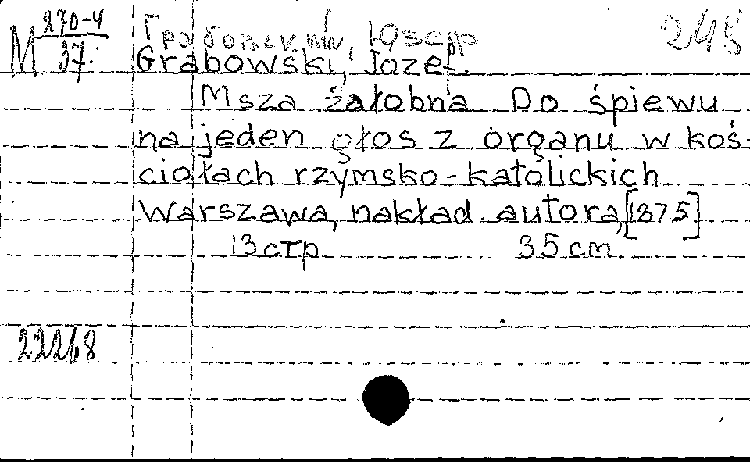 M 270-4 Грабовский, Юзеф 245
37. Grabowski, Józef.
Msza żałobna Do śpiewu
na jeden głos z organu w koś-
ciołach rzymsko-katolickich
Warszawa, nakład autora, [1875]
13 стр. 35 cm.
22268